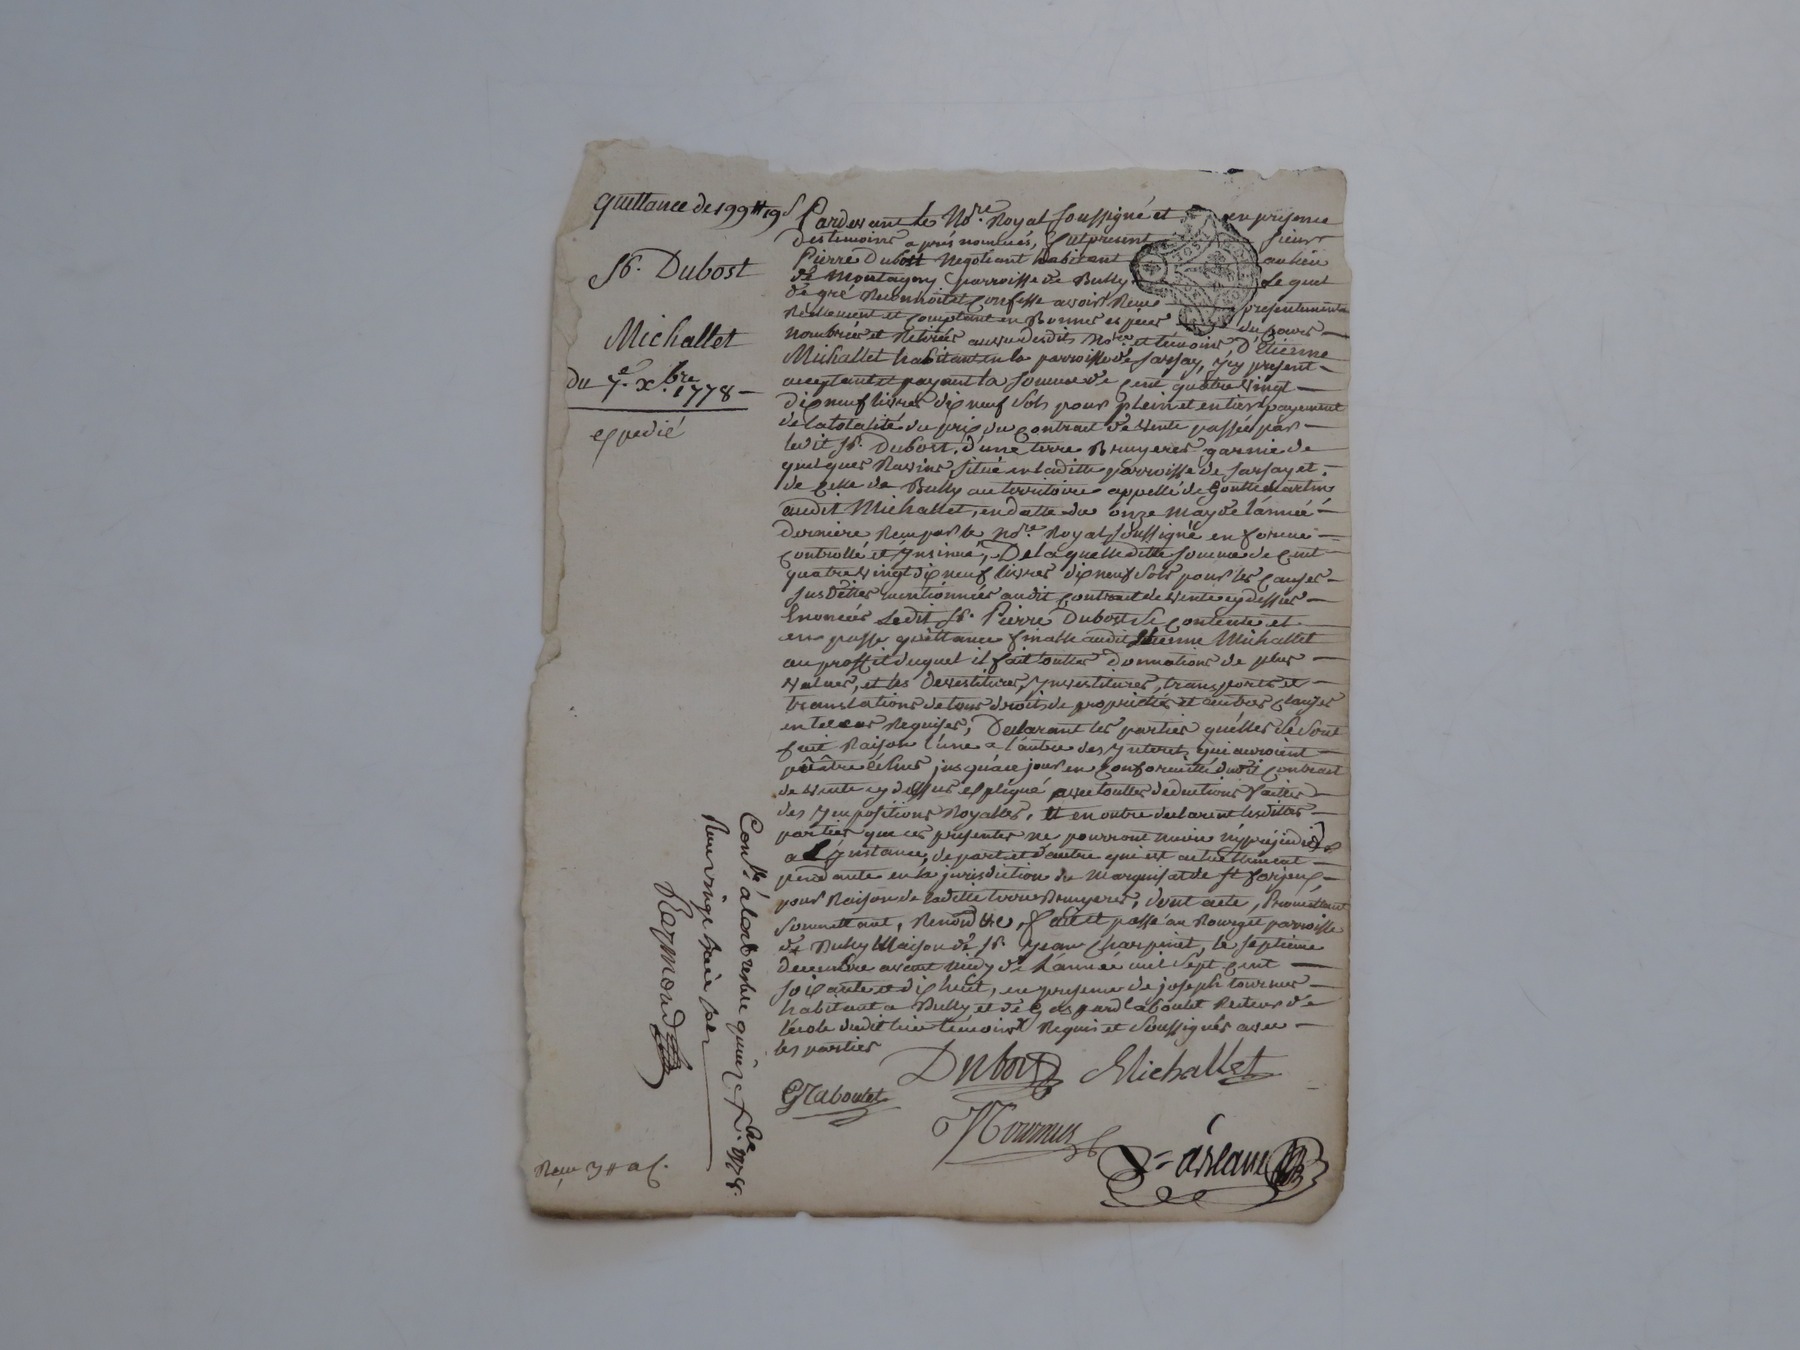 Quittance de 199 ₶ 19 s
Sr. Dubost
Michallet
du 7e. Xbre 1778
expedié
Pardevant le Nore. Royal soussigné et en presence
des temoins après nommés, fut present sieur
Pierre Dubost Negotiant habitant au lieu
de Montagny parroisse de Bully Lequel
de gré Reconnoit et confesse avoir Reçu presentement
Reellement et comptant en Bonnes espèces du cours
nombrées et Retirées au vu desdits Nore. et témoins d'Etienne
Michallet habitant en la parroisse de Sarsay, icy present
acceptant et payant la somme de cent quatre vingt
dix neuf livres dix neuf sols pour plein et entier payement
de la totalité du prix du contrat de vente passée par
ledit Sr. Dubost, d'une terre Bruyeres garnie de
quelques Ravins, situé en laditte parroisse de Sarsay et
de celle de Bully au territoire appellé de Goutte martin
audit Michallet, en datte du onze may de l'année
derniere Reçu par le Nore. Royal soussigné en forme
controllé et Insinué, De laquelle ditte somme de cent
quatre vingt dix neuf livres dix neuf sols pour les causes
susdittes mentionnées audit contrat de vente cy dessus
Enoncés Ledit Sr. Pierre Dubost se contente et
en passe quittance finalle audit Etienne Michallet
au proffit duquel il fait toutes donnations de plus
values, et les devestitures, Investitures, transports et
translations de tous droits de propriétés et autres clauses
en tel cas Requises, Declarant les parties qu'elles se sont
fait Raison l'une a l'autre des Interets qui auroient
pu être échus jusqu'a ce jour en conformité dudit contrat
de vente cy dessus expliqué avec touttes deductions faites
des Impositions Royalles, Et en outre declarent lesdittes
parties que ces presentes ne pourront nuire n'y prejudicier
a L'Instance, de part et d'autre qui est actuellement
pendante en la jurisdiction du Marquisat de St forjeux
pour Raison de laditte terre Bruyeres, dont acte, Promettant
soumettant, Renonçant, fait et passé au Bourg et parroisse
de Bully Maison de Sr. Jean Charpinet, le septieme
decembre avant midy de l'année mil sept cent
soixante et dix huit, en presence de joseph tournus
habitant a Bully et de Gaspard Laboulet Recteur de
l'ecole dudit lieu témoins Requis et soussignés avec
les parties
Dubost Michallet
G Laboulet
J Tournus
aveaue
Conllé a larbresle quinze Xbre 1778.
Reçu vingt huit sols
Raymond
Reçu 3 ₶ a s.